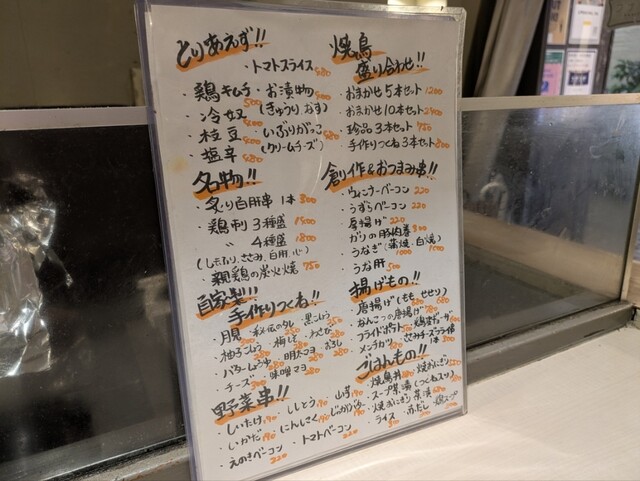 とりあえず!!
・トマトスライス 480
・鶏キムチ 500 ・お漬物 400
・冷奴 400 (きゅうり,なす)
・枝豆 400 ・いぶりがっこ 480
・塩辛 480 (クリームチーズ)
名物!!
・炙り白肝串 1本 300
・鶏刺 3種盛 1500
〃 4種盛 1800
・親鶏の炭火焼 750
自家製!!
手作りつくね!!
・月見
・柚子こしょう
・チーズ
・味噌マヨ 280
野菜串!!
・しいたけ 190 ・ししとう 190 ・山芋
・いかだ 190 ・にんにく 190
・えのきベーコン 220 ・トマトベーコン 220
焼鳥
盛り合わせ!!
・おまかせ 5本セット 1200
・おまかせ 10本セット 2400
・珍品 3本セット 750
・手作りつくね 3本セット 800
創作&おつまみ串!!
・ウィンナーベーコン 220
・うずらベーコン 220
・厚揚げ 220
・ガリの豚肉巻 300
・うなぎ (蒲焼・白焼) 1000 1500
・うな肝 500
揚げもの!!
・唐揚げ (もも せせり)
・なんこつの唐揚げ
・フライドポテト
・メンチカツ ・ささみチーズフライ 1本 300
ごはんもの!!
・焼鳥丼 ・焼おにぎり
・スープ茶漬 (つくね入り)
・焼おにぎり茶漬
・ライス ・赤だし ・鶏スープ